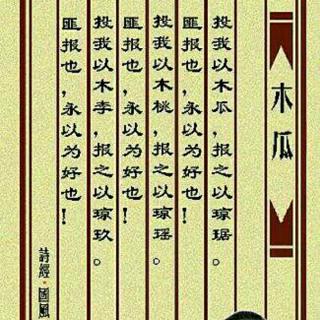 木瓜
投我以木瓜，报之以琼琚。
匪报也，永以为好也！
投我以木桃，报之以琼瑶。
匪报也，永以为好也！
投我以木李，报之以琼玖。
匪报也，永以为好也！
詩經·國風